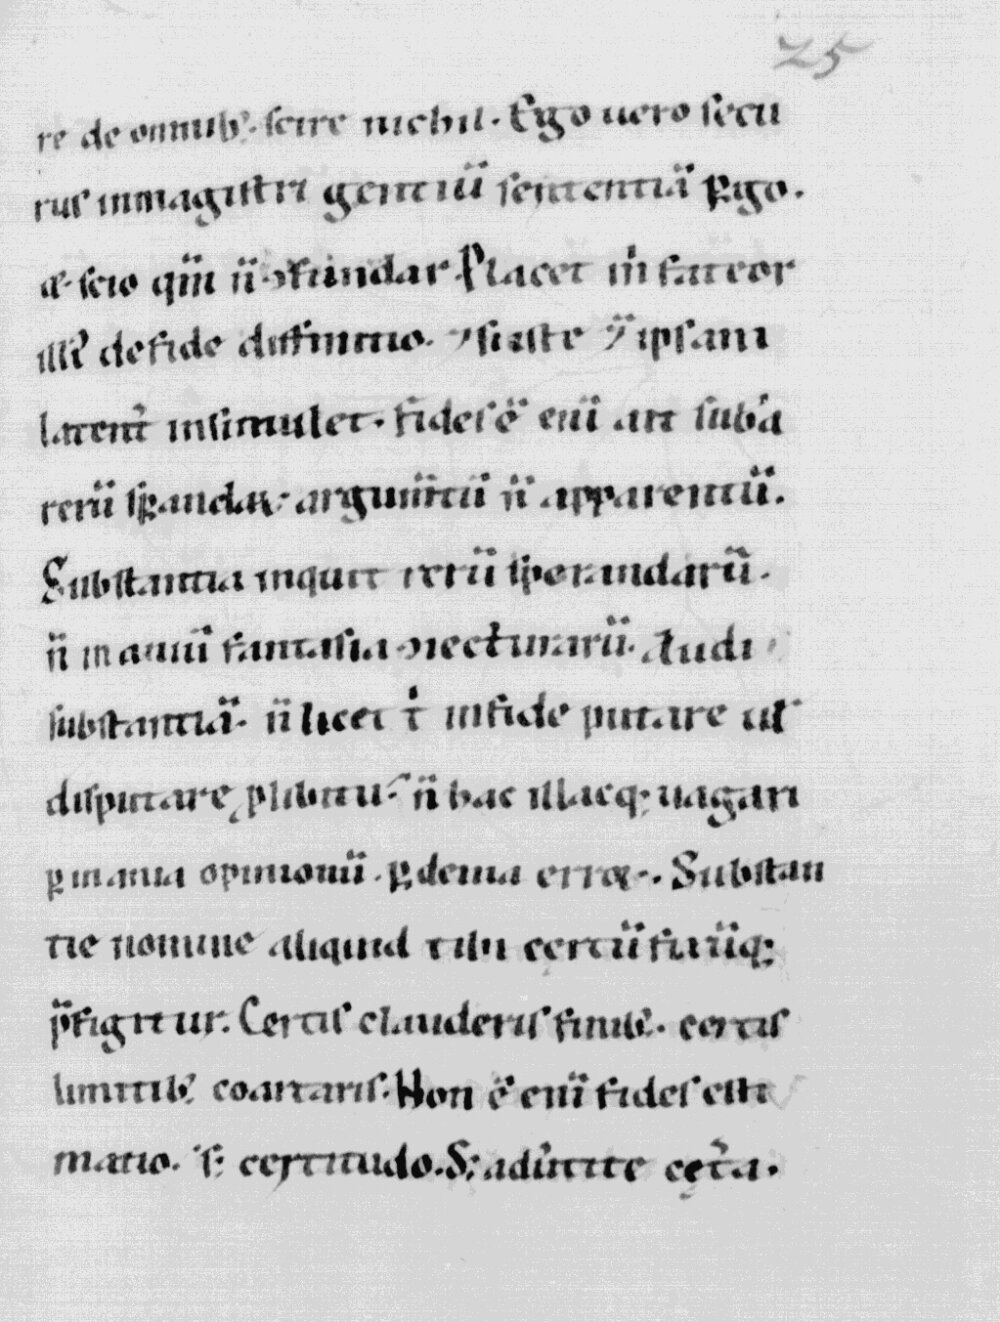 25
re de omnib; scire nichil. Ego uero secu
rus in magistri gentiū sententiā ꝑgo.
& scio qm̄ n̄ ↄfundar. Placet m̓ fateor
illi᷒ de fide diffinitio. ⁊ si iste ⁊ ipsam
latent̓ insimulet. Fides ē eni̅ ait sub̓a
rerū sꝑandaꝝ. argum̄tū n̄ apparentū.
Substantia inquit rerū sperandarū.
n̄ inaniū fantasia ↄiecturarū. Audi
substantiā. n̄ licet t̓ in fide putare ul̓
disputare ꝓ libitu. n̄ hac illacq; uagari
ꝑ inania opinionū. ꝑ deuia erroꝝ. Substan
tie nomine aliquid tibi certū fixūq;
p̄figitur. Certis clauderis finib; certis
limitib; coartaris. Non ē eni̅ fides esti
matio. s; certitudo. S; aduertite cet̓a.